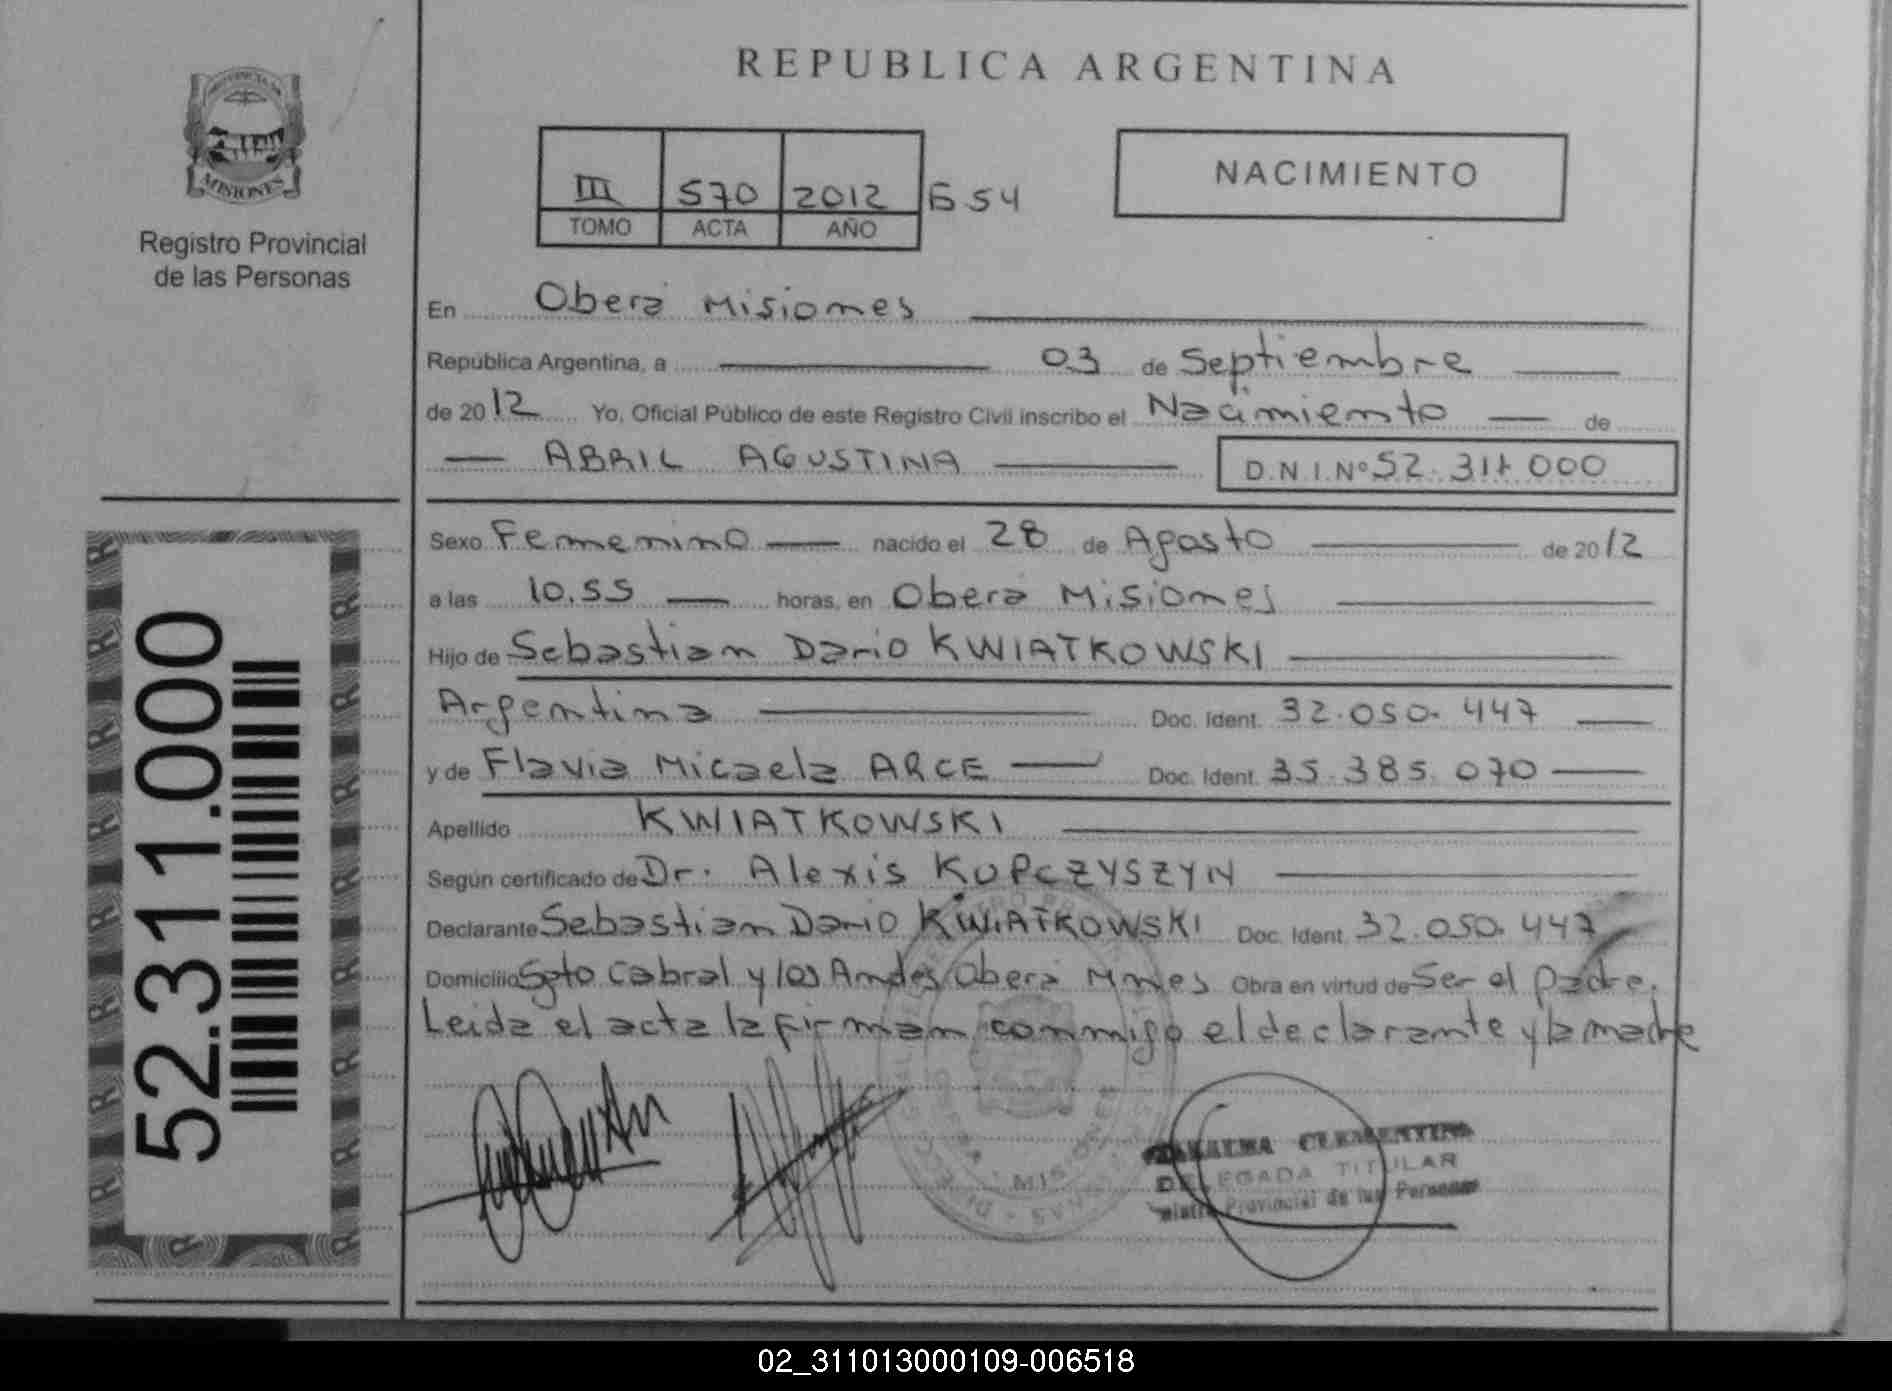 REPUBLICA ARGENTINA
PROVINCIA DE
MISIONES
Registro Provincial
de las Personas
III 570 2012 654
TOMO ACTA AÑO
NACIMIENTO
En Oberá Misiones
República Argentina, a 03 de Septiembre
de 2012 Yo, Oficial Público de este Registro Civil inscribo el Nacimiento de
ABRIL AGUSTINA D.N.I.Nº 52.311.000
Sexo Femenino nacido el 28 de Agosto de 2012
a las 10.55 horas, en Oberá Misiones
Hijo de Sebastian Dario KWIATKOWSKI
Argentina Doc. Ident. 32.050.447
y de Flavia Micaela ARCE Doc. Ident. 35.385.070
Apellido KWIATKOWSKI
Según certificado de Dr. Alexis KUPCZYSZYN
Declarante Sebastian Dario KWIATKOWSKI Doc. Ident. 32.050.447
Domicilio Sgto Cabral y los Andes Oberá Mnes Obra en virtud de Ser el padre.
Leida el acta la firman conmigo el declarante y la madre
52.311.000
CLEMENTINA
DELEGADA TITULAR
Provincial de las Personas
MISIONES
02_311013000109-006518